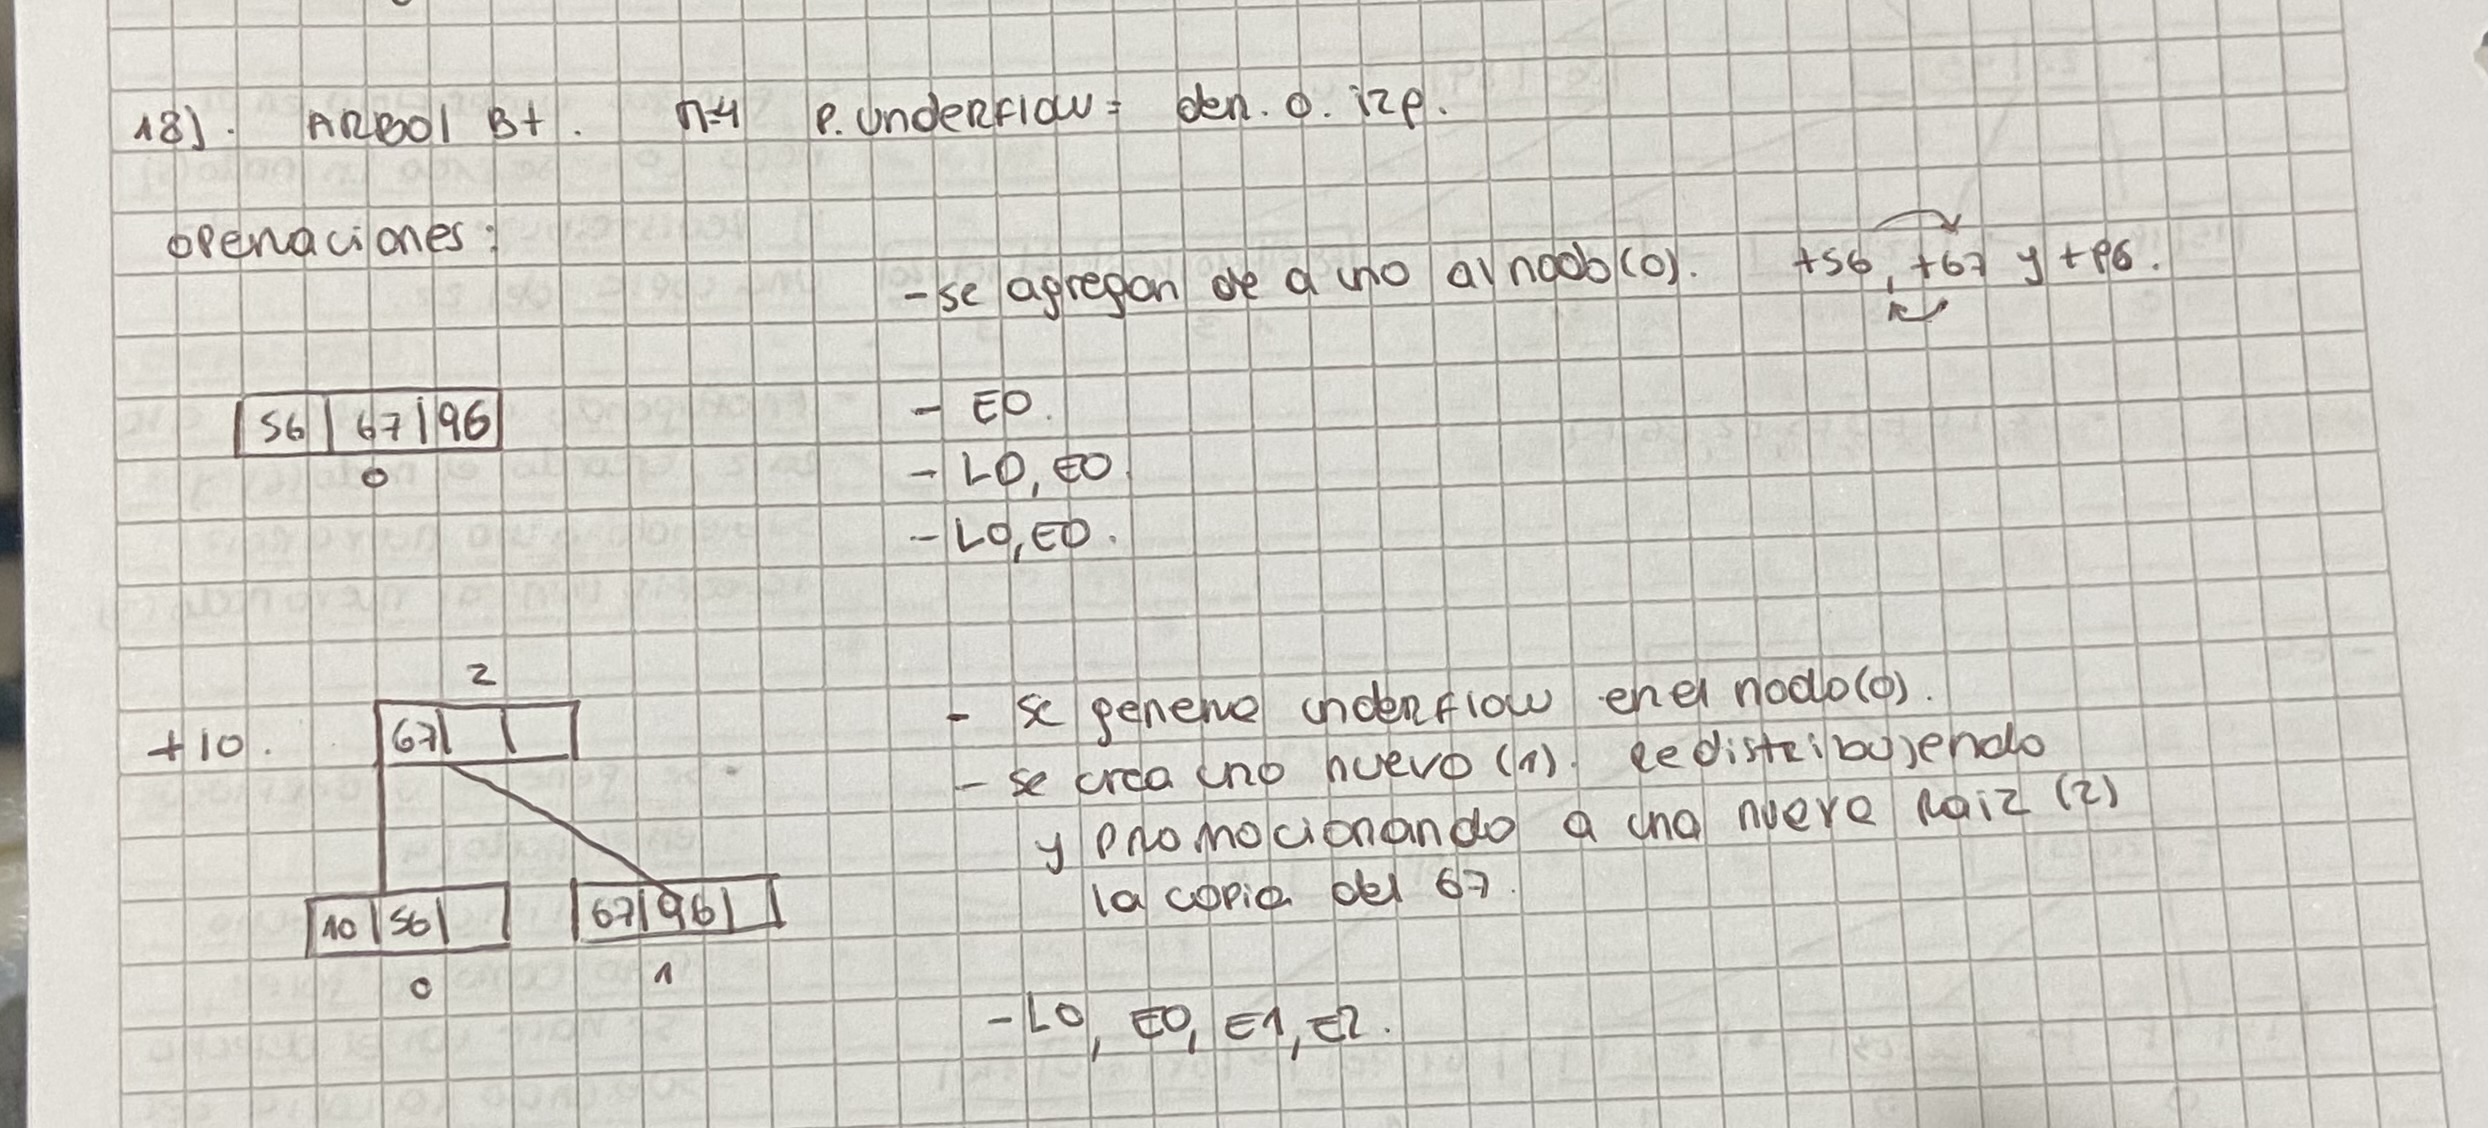 18). ARBOl B+. n=4 P. underflow= der. o. izq.
operaciones:
-se agregan de a uno al nodo(0). +56, +67 y +96.
56 67 96
0
- E0.
- L0, E0.
- L0, E0.
+10.
2
67
10 56
67 96
0
1
- se genera underflow en el nodo(0).
- se crea uno nuevo (1). Redistribuyendo
y promocionando a una nueva Raiz (2)
la copia del 67.
-L0, E0, E1, E2.